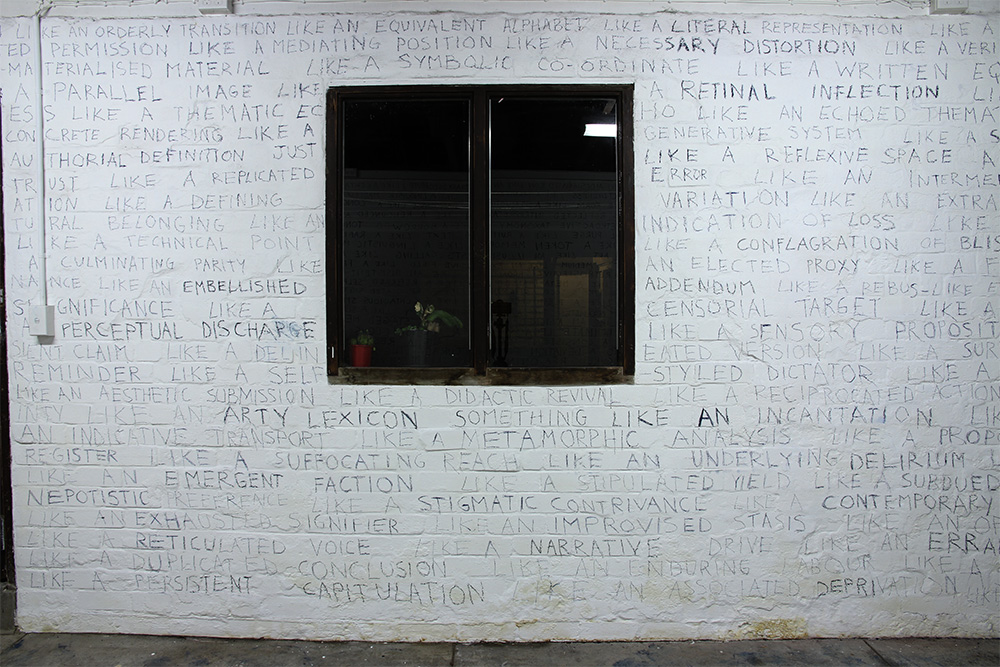 LIKE AN ORDERLY TRANSITION LIKE AN EQUIVALENT ALPHABET LIKE A LITERAL REPRESENTATION LIKE A
TED PERMISSION LIKE A MEDIATING POSITION LIKE A NECESSARY DISTORTION LIKE A VERI
-MATERIALISED MATERIAL LIKE A SYMBOLIC CO-ORDINATE LIKE A WRITTEN EQ
A PARALLEL IMAGE LIKE A RETINAL INFLECTION LI
ES LIKE A THEMATIC EC HO LIKE AN ECHOED THEMA
CONCRETE RENDERING LIKE A GENERATIVE SYSTEM LIKE A S
AUTHORIAL DEFINITION JUST LIKE A REFLEXIVE SPACE A
TRUST LIKE A REPLICATED ERROR LIKE AN INTERME
ATION LIKE A DEFINING VARIATION LIKE AN EXTRA
TURAL BELONGING LIKE AN INDICATION OF LOSS LIKE
LIKE A TECHNICAL POINT LIKE A CONFLAGRATION OF BLIS
A CULMINATING PARITY LIKE AN ELECTED PROXY LIKE A F
NANCE LIKE AN EMBELLISHED ADDENDUM LIKE A REBUS-LIKE E
SIGNIFICANCE LIKE A CENSORIAL TARGET LIKE A
A PERCEPTUAL DISCHARGE LIKE A SENSORY PROPOSIT
CLAIM LIKE A DELIN EATED VERSION LIKE A SUR
REMINDER LIKE A SELF STYLED DICTATOR LIKE A
LIKE AN AESTHETIC SUBMISSION LIKE A DIDACTIC REVIVAL LIKE A RECIPROCATED ACTION
INTY LIKE AN ARTY LEXICON SOMETHING LIKE AN INCANTATION LIK
AN INDICATIVE TRANSPORT LIKE A METAMORPHIC ANALYSIS LIKE A PROP
REGISTER LIKE A SUFFOCATING REACH LIKE AN UNDERLYING DELIRIUM L
LIKE AN EMERGENT FACTION LIKE A STIPULATED YIELD LIKE A SUBDUED
NEPOTISTIC PREFERENCE LIKE A STIGMATIC CONTRIVANCE LIKE A CONTEMPORARY
LIKE AN EXHAUSTED SIGNIFIER LIKE AN IMPROVISED STASIS LIKE AN
LIKE A RETICULATED VOICE LIKE A NARRATIVE DRIVE LIKE AN ERRA
LIKE A DUPLICATED CONCLUSION LIKE AN ENDURING LABOUR LIKE A
LIKE A PERSISTENT CAPITULATION LIKE AN ASSOCIATED DEPRIVATION LIKE